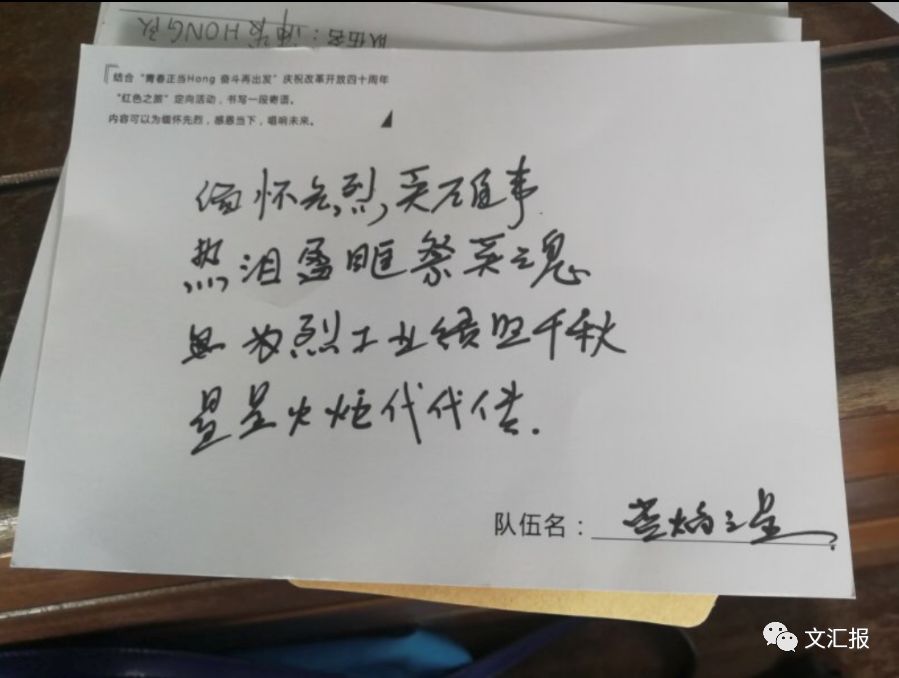 队伍名：HONG队
结合“青春正当Hong 奋斗再出发”庆祝改革开放四十周年
“红色之旅”定向活动，书写一段寄语。
内容可以为缅怀先烈，感恩当下，唱响未来。
缅怀先烈,英雄事
热泪盈眶祭英魂
无为烈士业绩照千秋
星星火炬代代传.
队伍名：之星
文汇报